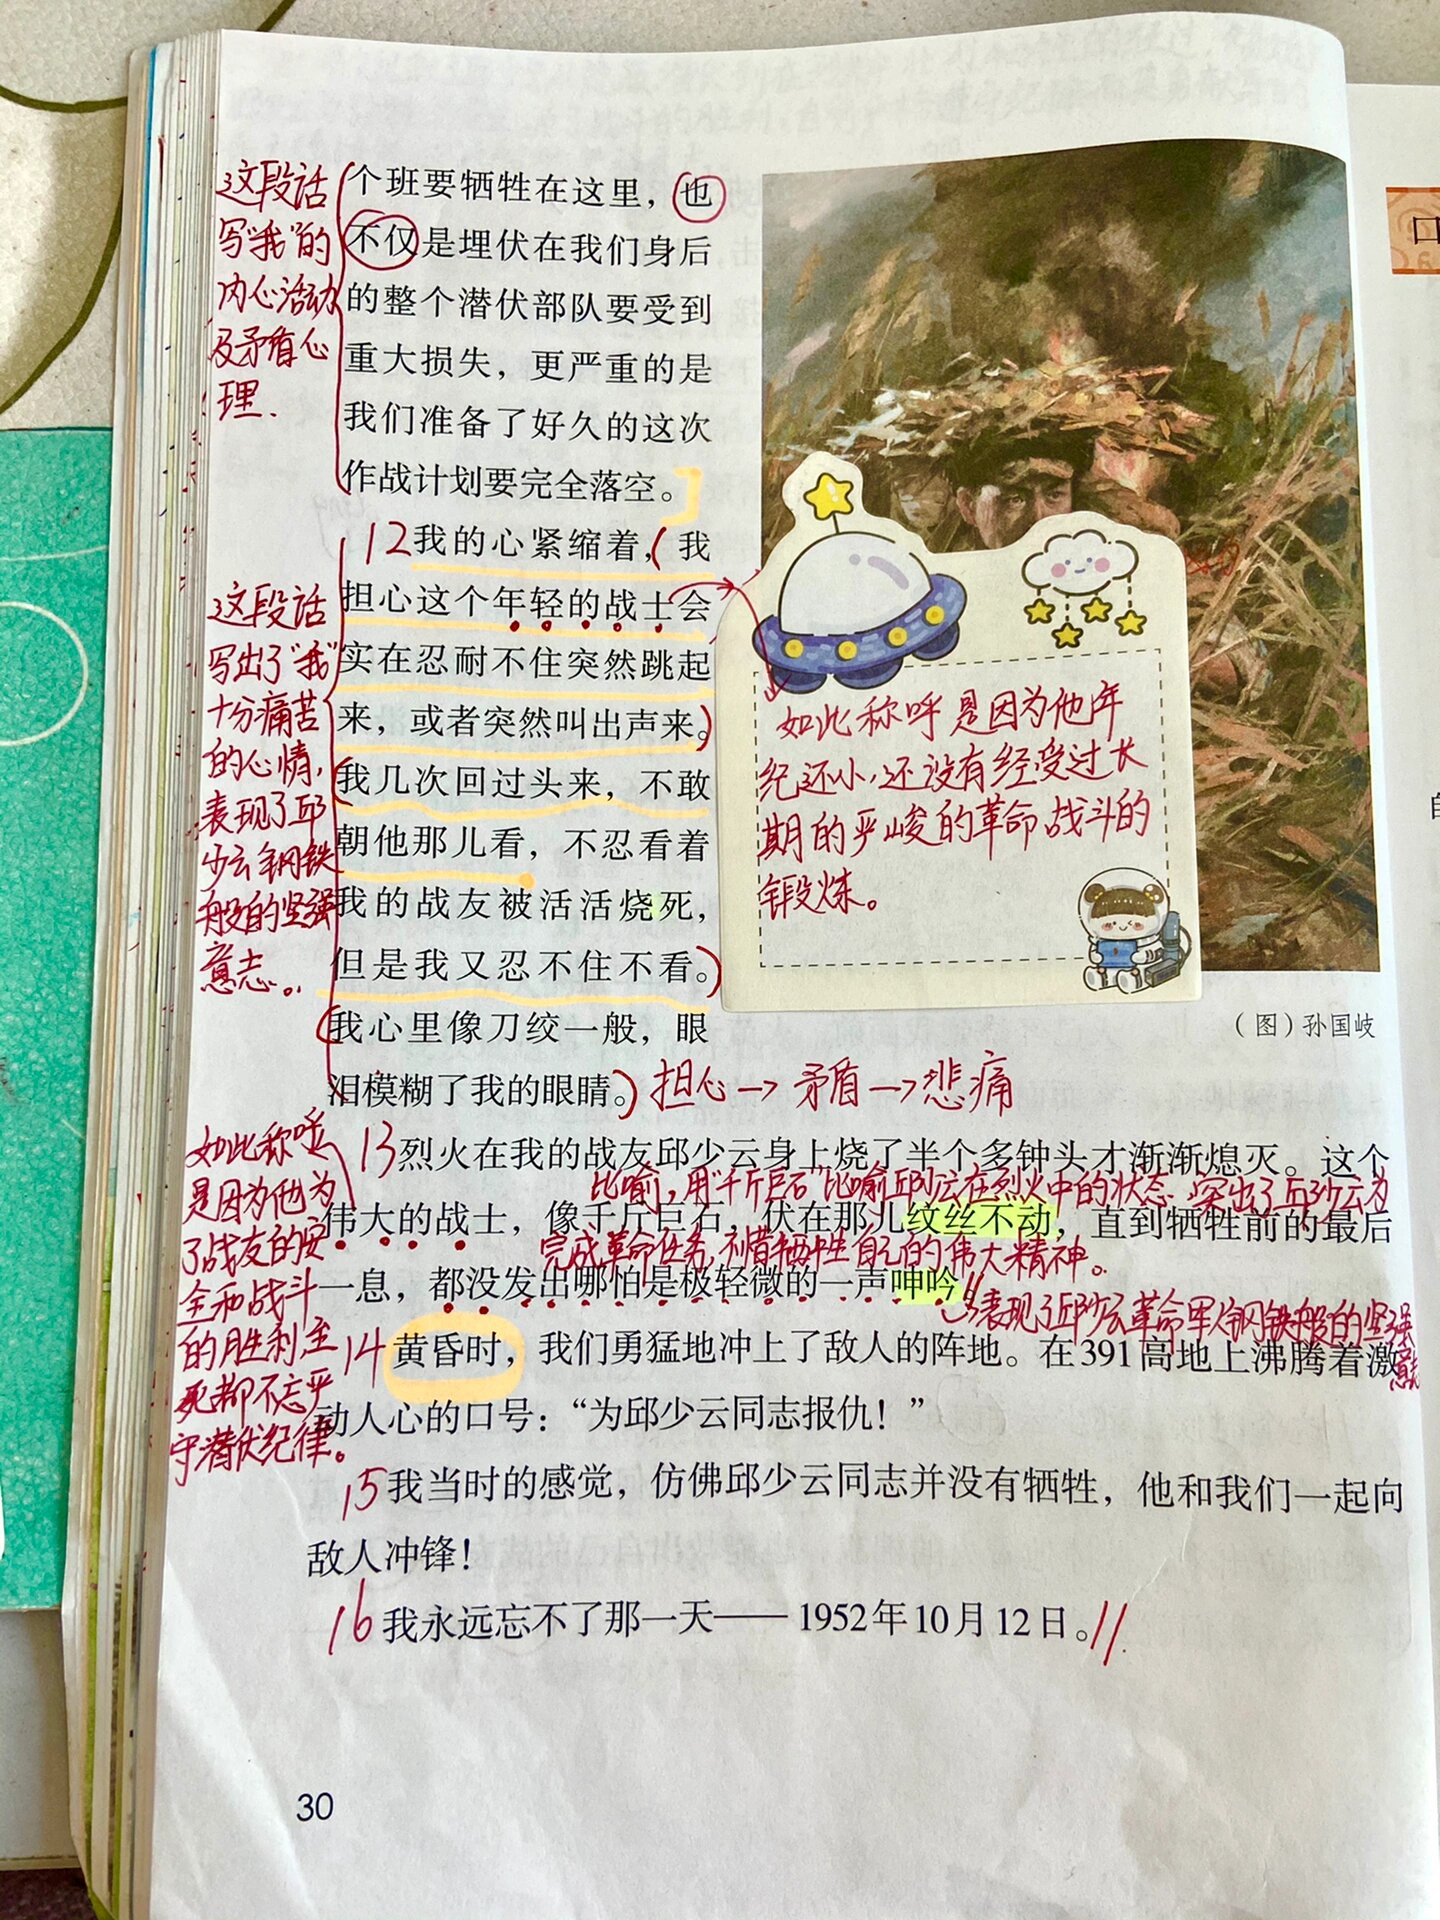 个班要牺牲在这里，也
不仅是埋伏在我们身后
的整个潜伏部队要受到
重大损失，更严重的是
我们准备了好久的这次
作战计划要完全落空。
这段话
写“我”的
内心活动
及矛盾心
理.
12我的心紧缩着，(我
担心这个年轻的战士会
实在忍耐不住突然跳起
来，或者突然叫出声来。)
(我几次回过头来，不敢
朝他那儿看，不忍看着
我的战友被活活烧死，
但是我又忍不住不看。)
(我心里像刀绞一般，眼
泪模糊了我的眼睛。) 担心→矛盾→悲痛
这段话
写出了“我”
十分痛苦
的心情，
表现了邱
少云钢铁
般的坚强
意志。
如此称呼是因为他年
纪还小，还没有经受过长
期的严峻的革命战斗的
锻炼。
(图)孙国岐
13烈火在我的战友邱少云身上烧了半个多钟头才渐渐熄灭。这个
比喻，用“千斤巨石”比喻邱少云在烈火中的状态，突出了邱少云为
伟大的战士，像千斤巨石，伏在那儿纹丝不动，直到牺牲前的最后
完成革命任务，不惜牺牲自己的伟大精神。
一息，都没发出哪怕是极轻微的一声呻吟。
表现了邱少云革命军人钢铁般的坚强
意志
如此称呼
是因为他为
了战友的安
全和战斗
的胜利至
死都不忘严
守潜伏纪律。
14黄昏时，我们勇猛地冲上了敌人的阵地。在391高地上沸腾着激
动人心的口号：“为邱少云同志报仇！”
15我当时的感觉，仿佛邱少云同志并没有牺牲，他和我们一起向
敌人冲锋！
16我永远忘不了那一天——1952年10月12日。//
30
口